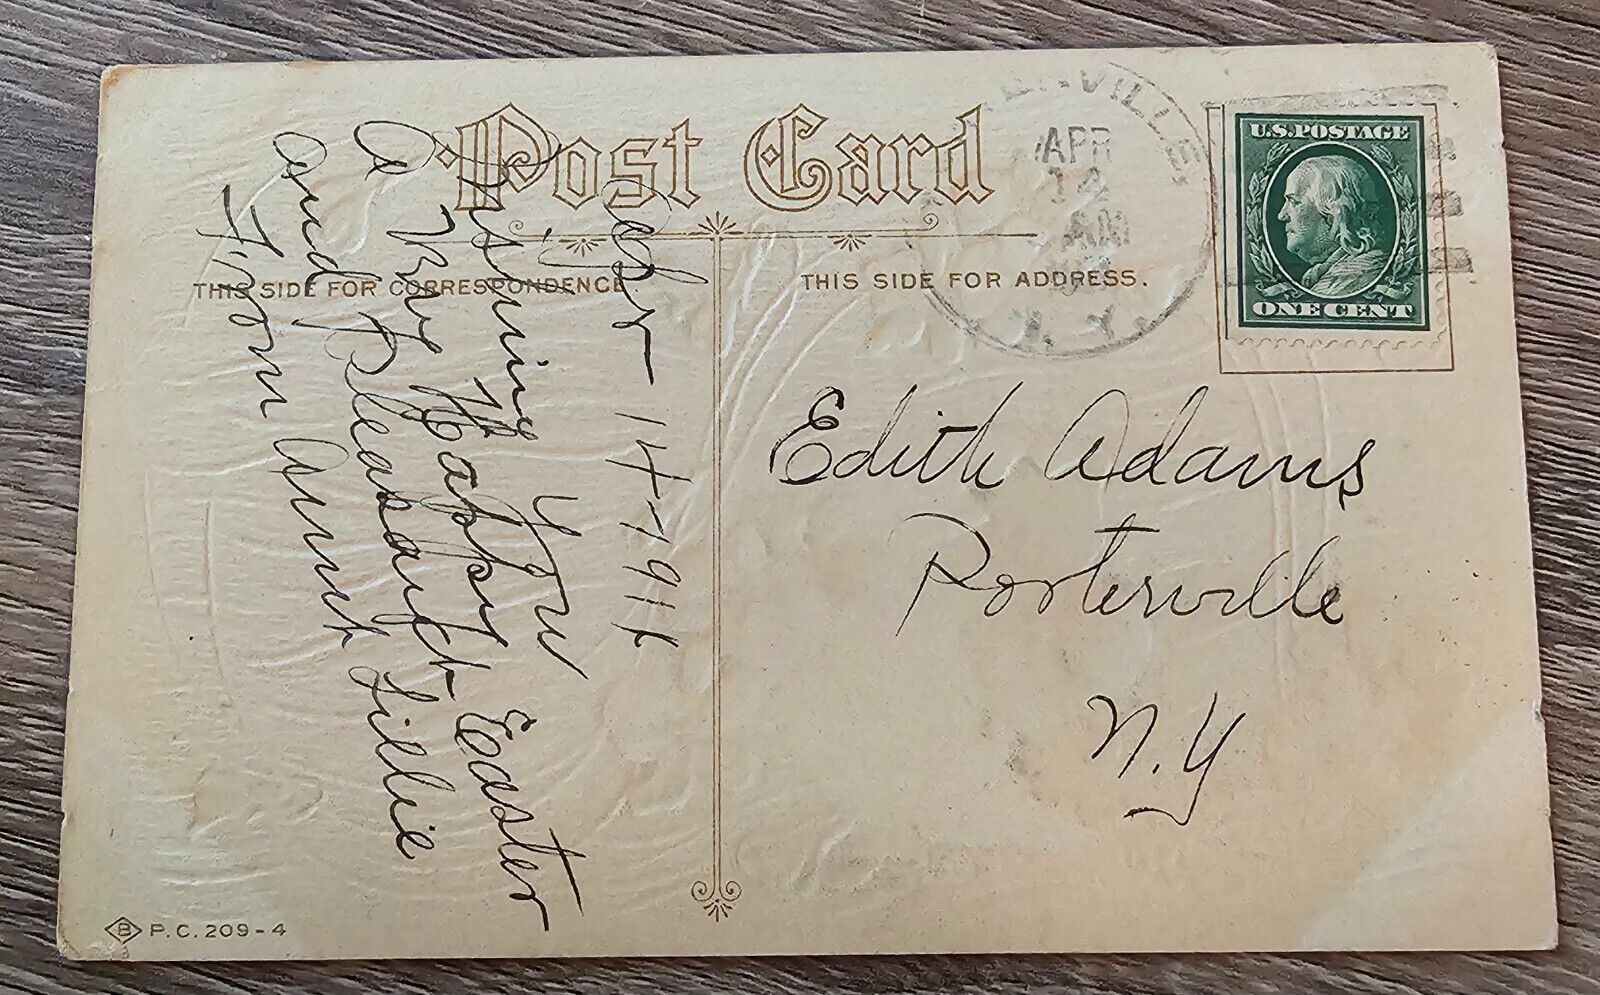 Post Card
THIS SIDE FOR CORRESPONDENCE
THIS SIDE FOR ADDRESS.
VILLE
APR
14
AM
N.Y.
U.S.POSTAGE
ONE CENT
Apr 14 1911
Wishing You
a Very Happy Easter
and Pleasant
From Aunt Lillie
Edith Adams
Porterville
N.Y
B P.C. 209-4